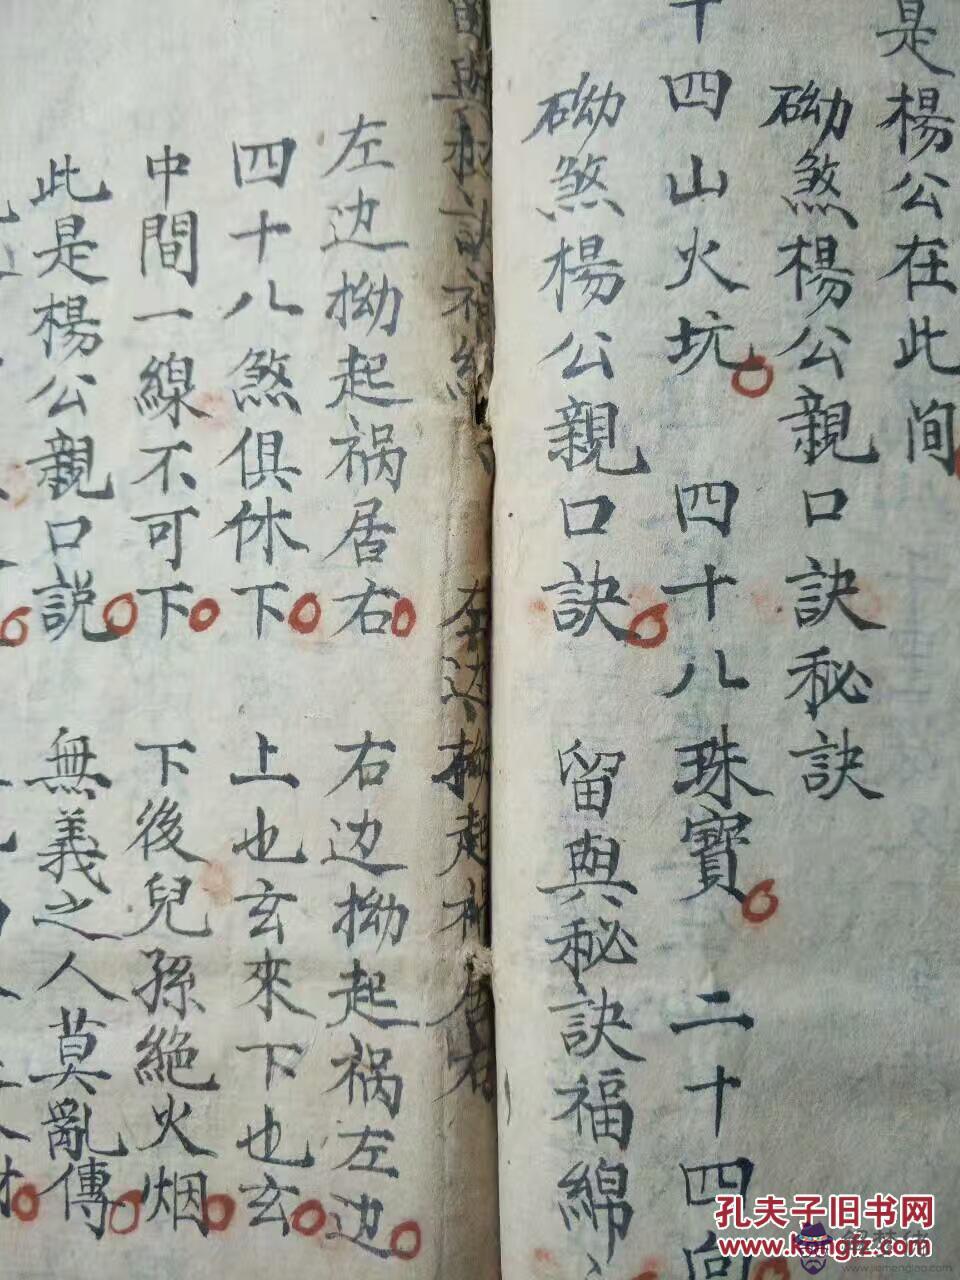 是楊公在此间
砂煞楊公親口訣秘訣
十四山火坑 四十八珠寶 二十四向
砂煞楊公親口訣 留與秘訣福綿
左边拗起祸居右 右边拗起祸左边
四十八煞俱休下 上也玄來下也玄
中間一線不可下 下後兒孫絶火烟
此是楊公親口説 無義之人莫亂傳
孔夫子旧书网
www.kongfz.com